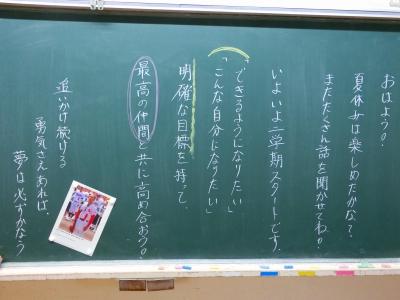 おはよう。
夏休みは楽しめたかな?
またたくさん話を聞かせてね。
いよいよ二学期スタートです。
「できるようになりたい」
「こんな自分になりたい」
明確な目標を持って、
最高の仲間と共に高め合おう。
追いかけ続ける
勇気さえあれば、
夢は必ずかなう